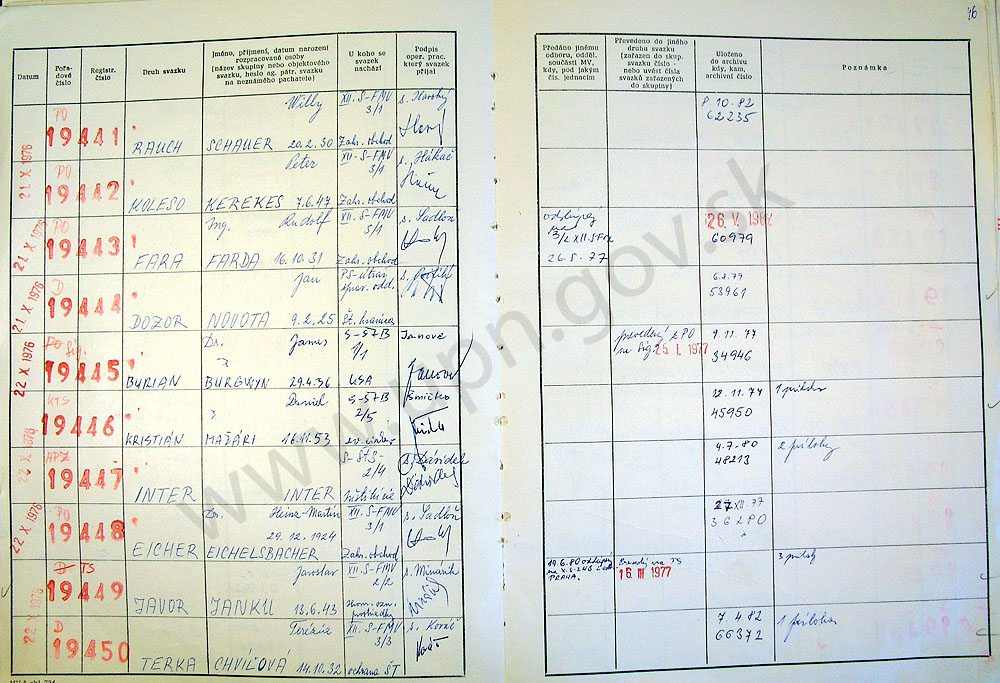 46
Datum
Pořa-
dové
číslo
Registr.
číslo
Druh svazku
Jméno, příjmení, datum narození
rozpracované osoby
(název skupiny nebo objektového
svazku, heslo ag. pátr. svazku
na neznámého pachatele)
U koho se
svazek
nachází
Podpis
oper. prac.
který svazek
přijal
Předáno jinému
odboru, odděl.
součásti MV,
kdy, pod jakým
čís. jednacím
Převedeno do jiného
druhu svazku
(zařazen do skup.
svazku číslo -
nebo uvést čísla
svazků zařazených
do skupiny)
Uloženo
do archivu
kdy, kam,
archivní číslo
Poznámka
21 X 1976
PO
19441
RAUCH
Willy
SCHAUER 20.2.30
XII. S-FMV
3/1
Zahr. obchod
8.10.82
62235
PO
19442
KOLESO
Peter
KEREKES 7.6.47
XII. S-FMV
3/1
Zahr. obchod
21 X 1976
PO
19443
FARA
Ing. Rudolf
FARDA 16.10.31
XII. S-FMV
3/1
Zahr. obchod
s. Sadloň
3/2 XII S FMV
26.5.77
26. V.
60979
21 X 1976
D
19444
DOZOR
Jan
NOVOTA 9.2.25
Št. hranica
6.2.79
53961
22 X 1976
PO
19445
BURIAN
Dr. James
BURGWYN 29.4.36
S-57B
1/1
USA
Janove
prevedený z PO
25. I. 1977
9.11.77
34946
KTS
19446
KRISTIÁN
Daniel
MAĎÁRI 16.11.53
S-57B
2/5
Smičko
12.11.77
45950
22 X 1976
19447
INTER
INTER
2/4
4.7.80
48213
2 prílohy
22 X 1976
PO
19448
EICHER
Dr. Heinz-Martin
29.12.1924
EICHELSBACHER
XII. S-FMV
3/1
Zahr. obchod
s. Sadloň
27 XII. 77
362 PO
D TS
19449
JAVOR
Jaroslav
JANKŮ 13.6.43
XII. S-FMV
2/2
s. Minárik
19.6.80
PRAHA
16 III 1977
22 X 1976
D
19450
TERKA
Terézia
CHVÍĽOVÁ 14.10.32
XII. S-FMV
3/3
ochrana ŠT
s. Kováč
7.4.82
66372
1 príloha
www.upn.gov.sk